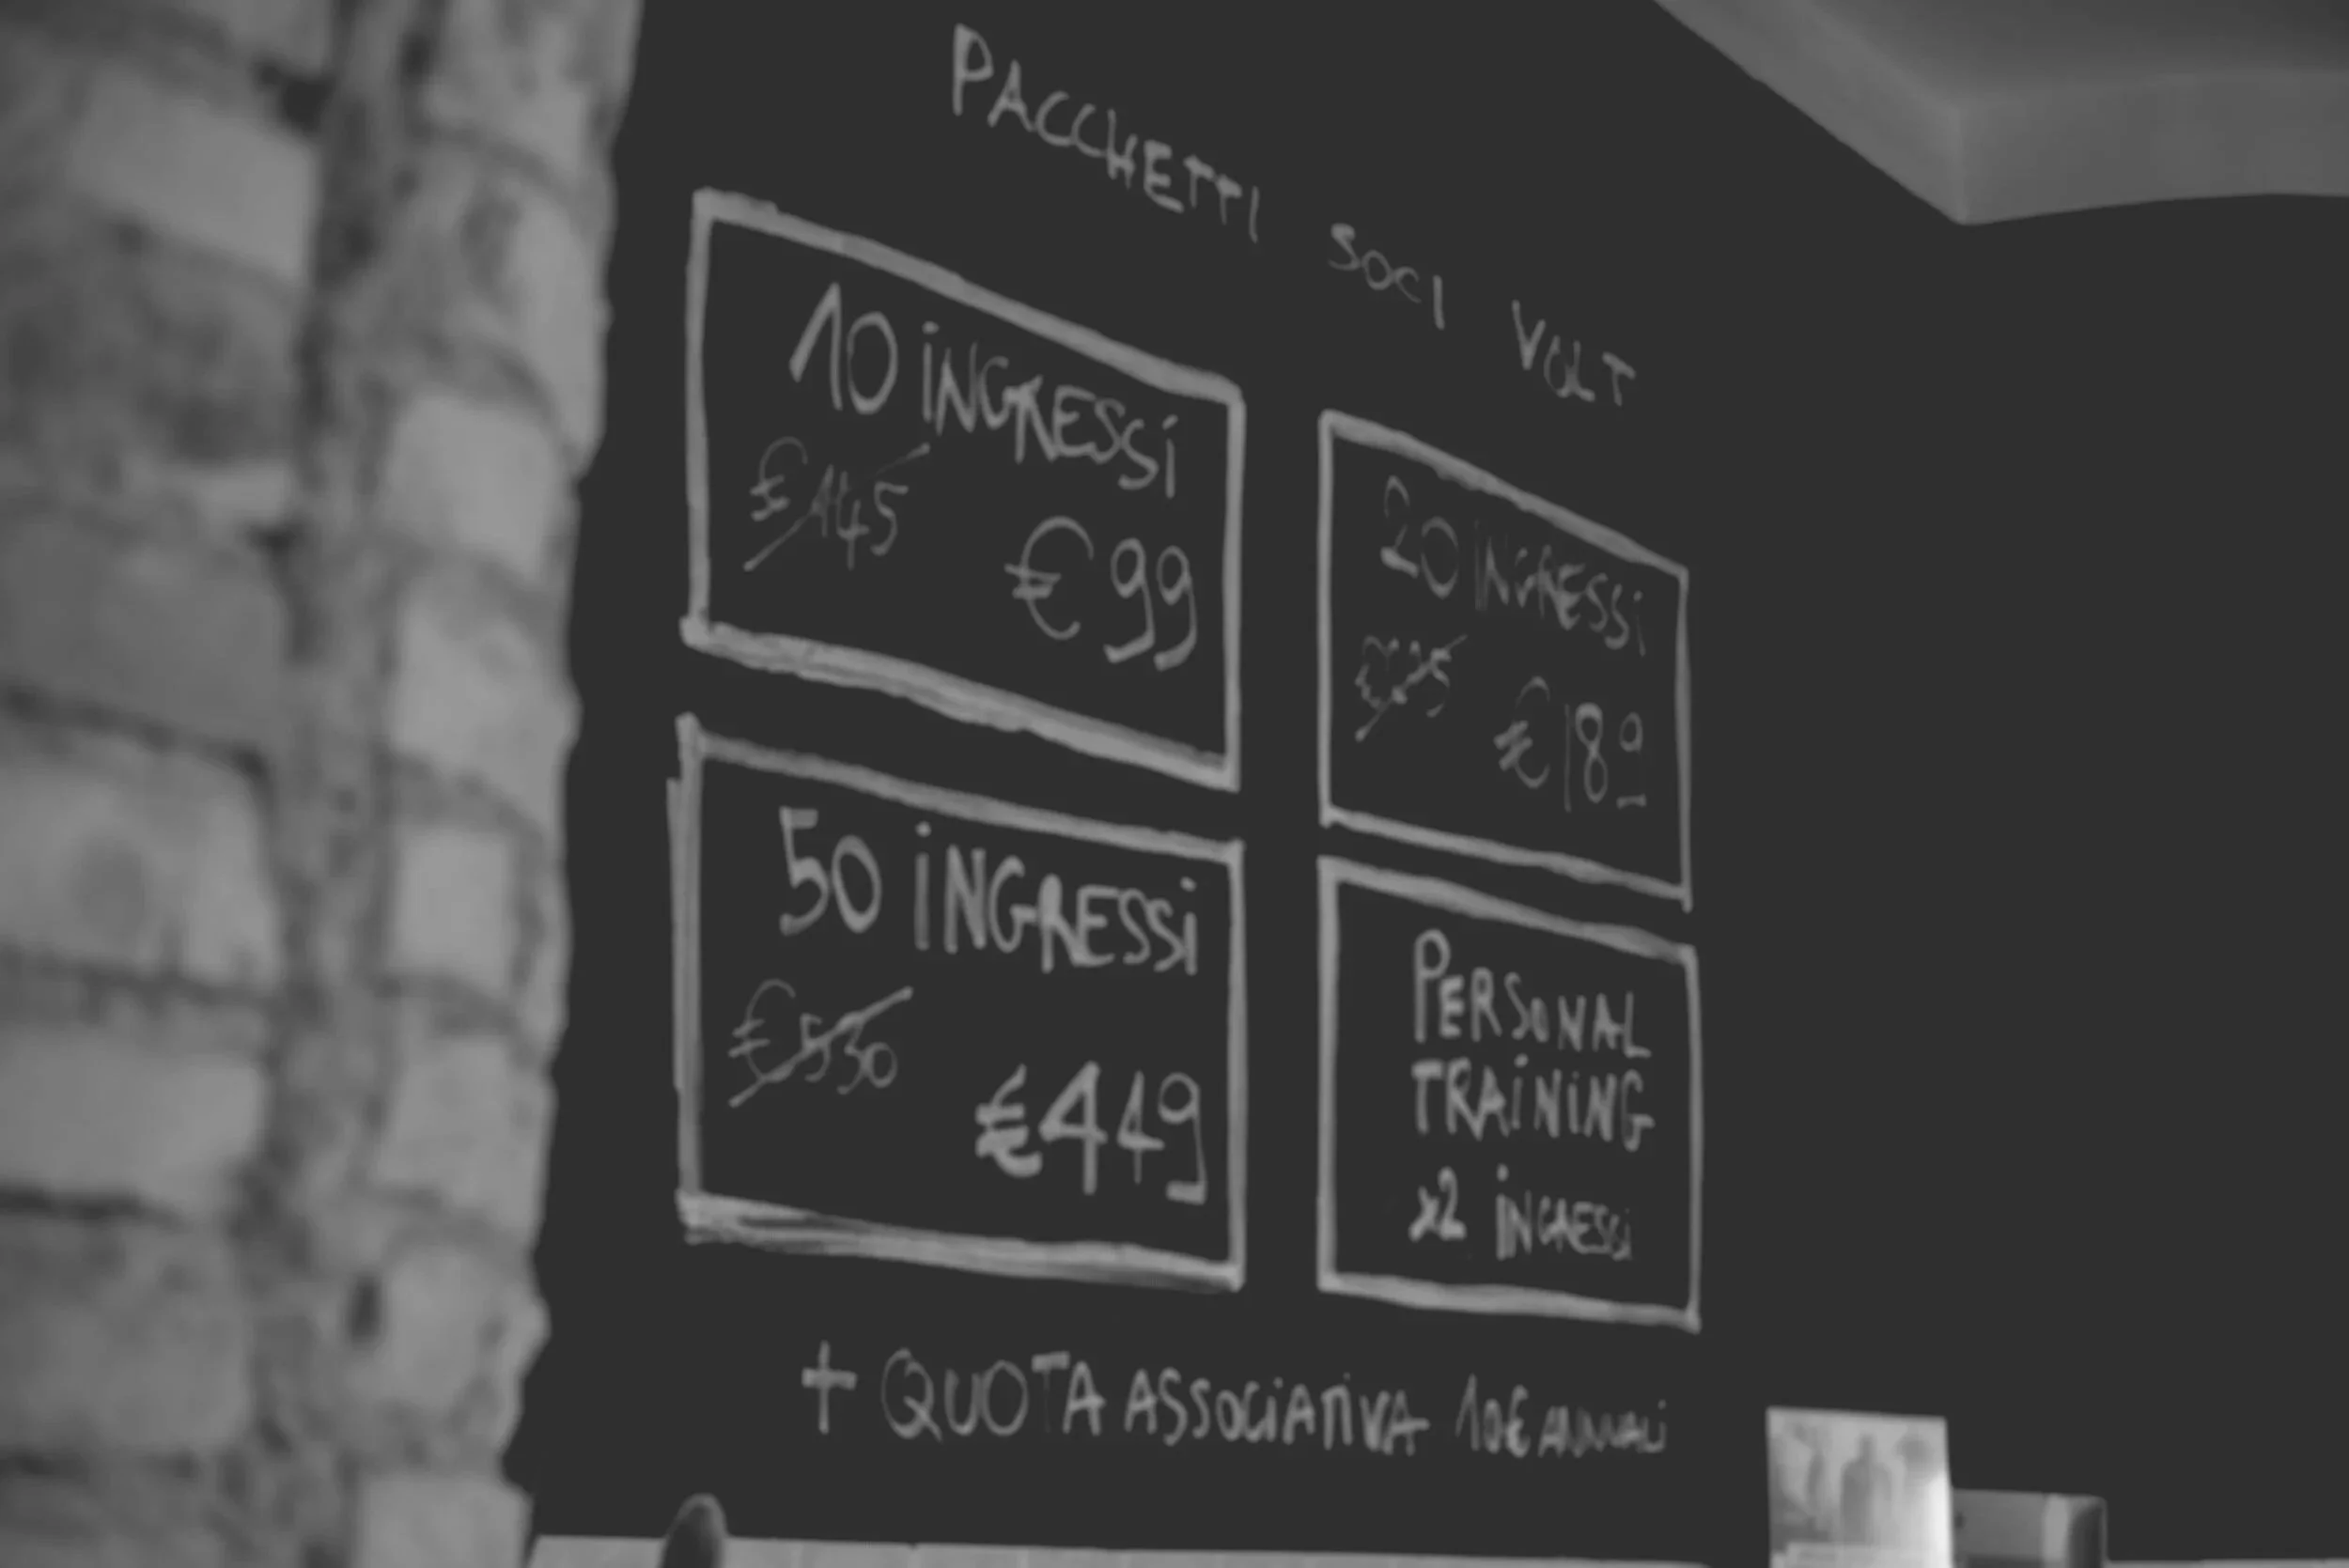 PACCHETTI SOCI VOLT
10 INGRESSI
€145
€99
20 INGRESSI
€189
50 INGRESSI
€530
€449
PERSONAL
TRAINING
x2 INGRESSI
+ QUOTA ASSOCIATIVA 10€ ANNUALI